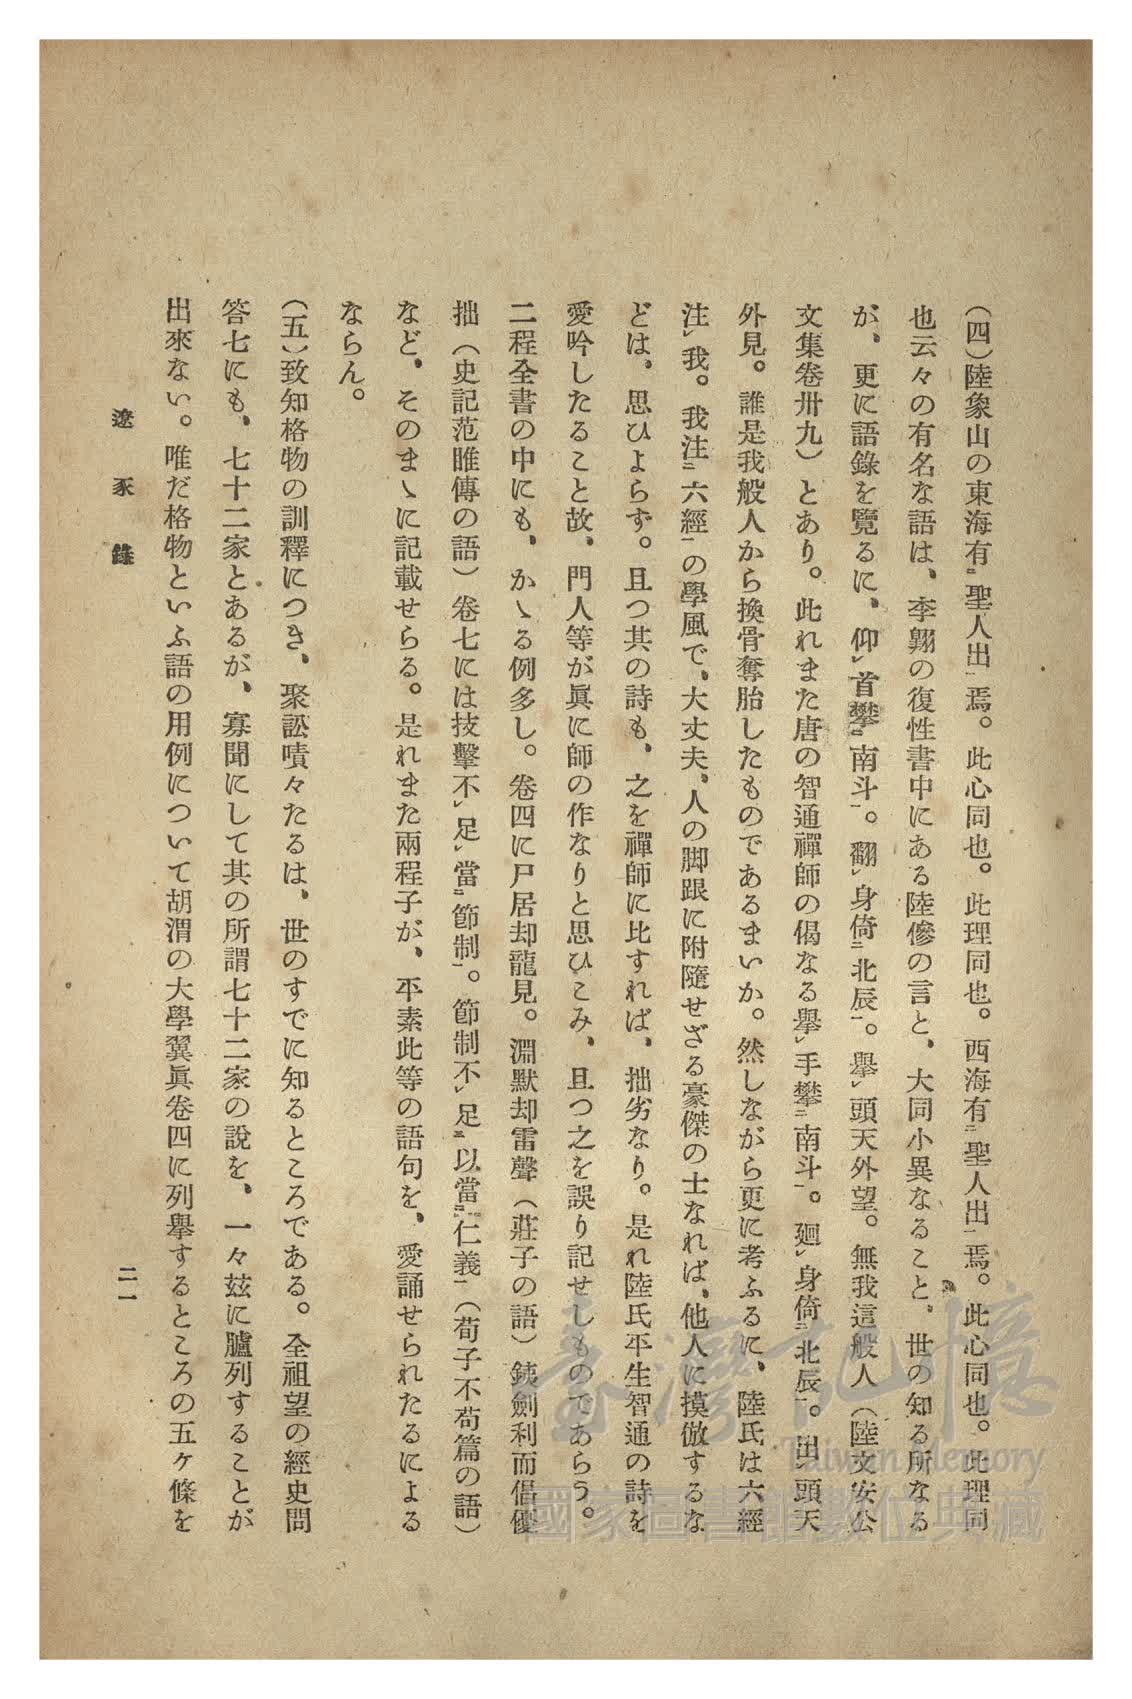 (四)陸象山の東海有㆓聖人出㆒焉。此心同也。此理同也。西海有㆓聖人出㆒焉。此心同也。此理同
也云々の有名な語は、李翺の復性書中にある陸傪の言と、大同小異なること、世の知る所なる
が、更に語錄を覽るに、仰㆑首攀㆓南斗㆒。翻㆑身倚㆓北辰㆒。擧㆑頭天外望。無我這般人(陸文安公
文集卷卅九)とあり。此れまた唐の智通禪師の偈なる擧㆑手攀㆓南斗㆒。廻㆑身倚㆓北辰㆒。出㆑頭天
外見。誰是我般人から換骨奪胎したものであるまいか。然しながら更に考ふるに、陸氏は六經
注㆑我。我注㆓六經㆒の學風で、大丈夫、人の脚跟に附隨せざる豪傑の士なれば、他人に摸倣するな
どは、思ひよらず。且つ其の詩も、之を禪師に比すれば、拙劣なり。是れ陸氏平生智通の詩を
愛吟したること故、門人等が眞に師の作なりと思ひこみ、且つ之を誤り記せしものであらう。
二程全書の中にも、かゝる例多し。卷四に尸居却龍見。淵默却雷聲(莊子の語)鐵劍利而倡優
拙(史記范睢傳の語)卷七には技擊不㆑足㆑當㆓節制㆒。節制不㆑足㆔以當㆓仁義㆒(荀子不苟篇の語)
など、そのまゝに記載せらる。是れまた兩程子が、平素此等の語句を、愛誦せられたるによる
ならん。
(五)致知格物の訓釋につき、聚訟嘖々たるは、世のすでに知るところである。全祖望の經史問
答七にも、七十二家とあるが、寡聞にして其の所謂七十二家の說を、一々玆に臚列することが
出來ない。唯だ格物といふ語の用例について胡渭の大學翼眞卷四に列擧するところの五ヶ條を
遼豕錄
二一
臺灣記憶
Taiwan Memory
國家圖書館數位典藏